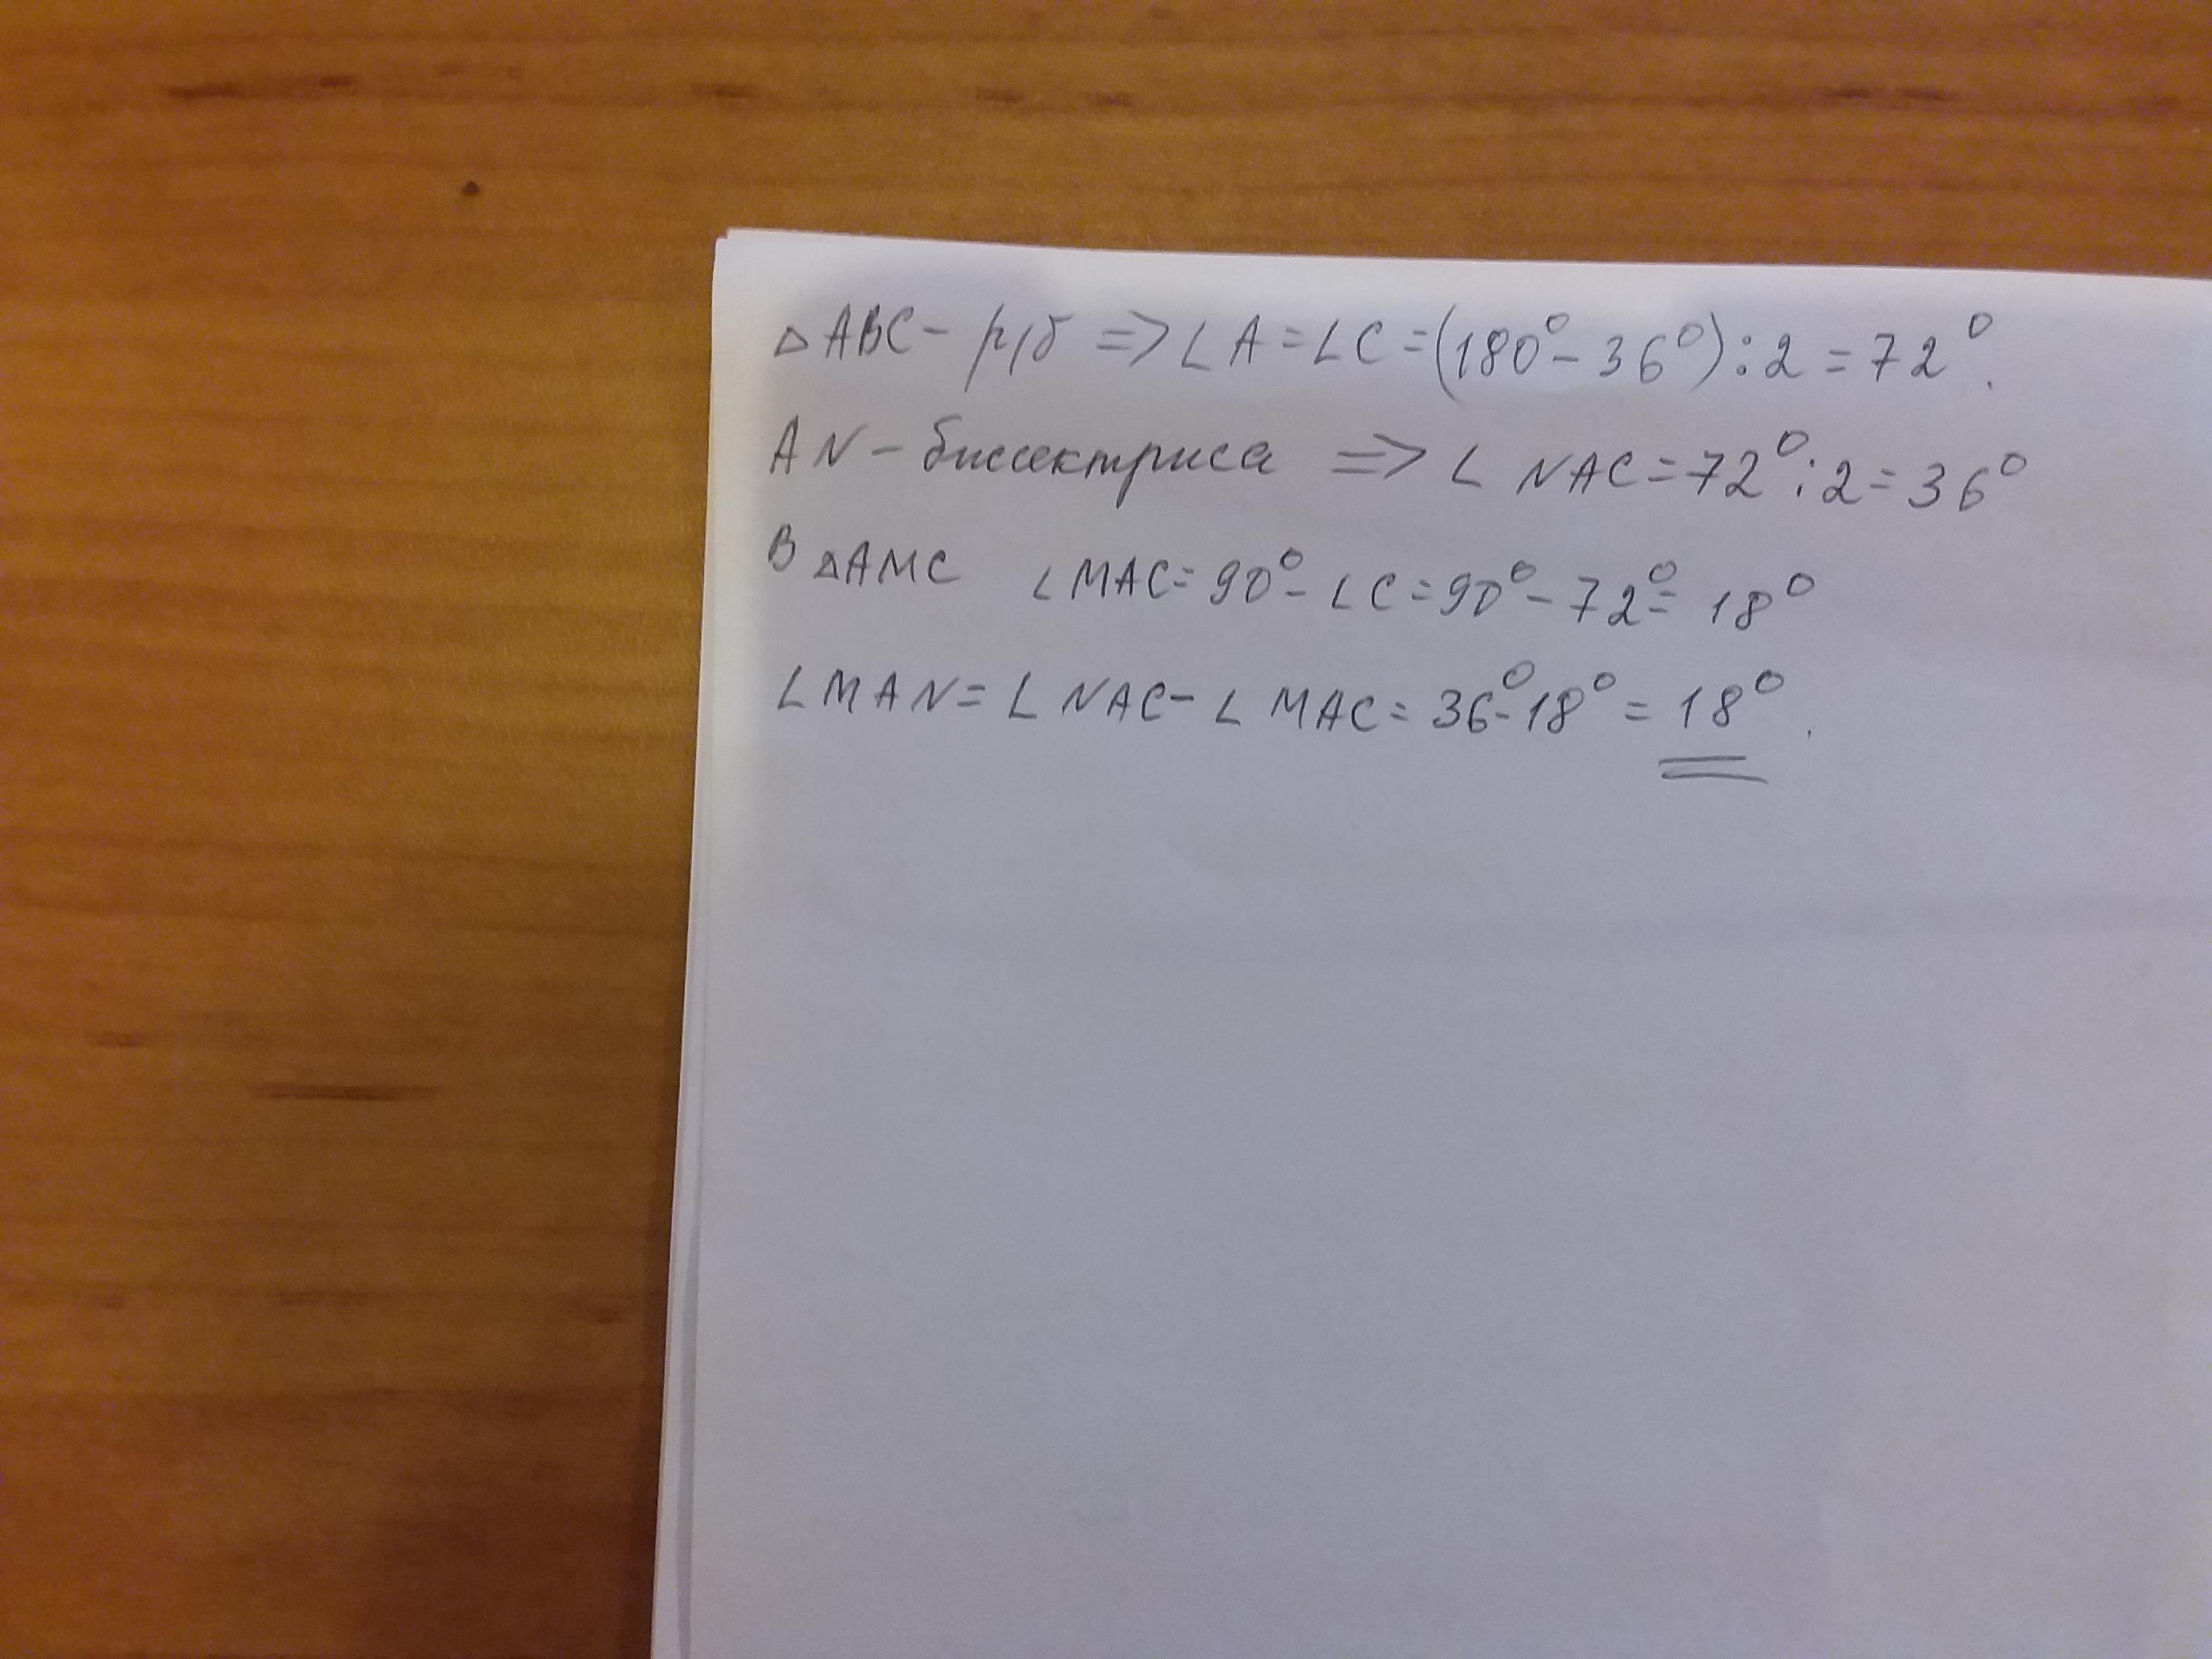 △ABC - р/б => ∠A = ∠C = (180° - 36°) : 2 = 72°.
AN - биссектриса => ∠NAC = 72° : 2 = 36°
В △AMC ∠MAC = 90° - ∠C = 90° - 72° = 18°
∠MAN = ∠NAC - ∠MAC = 36° - 18° = 18°.